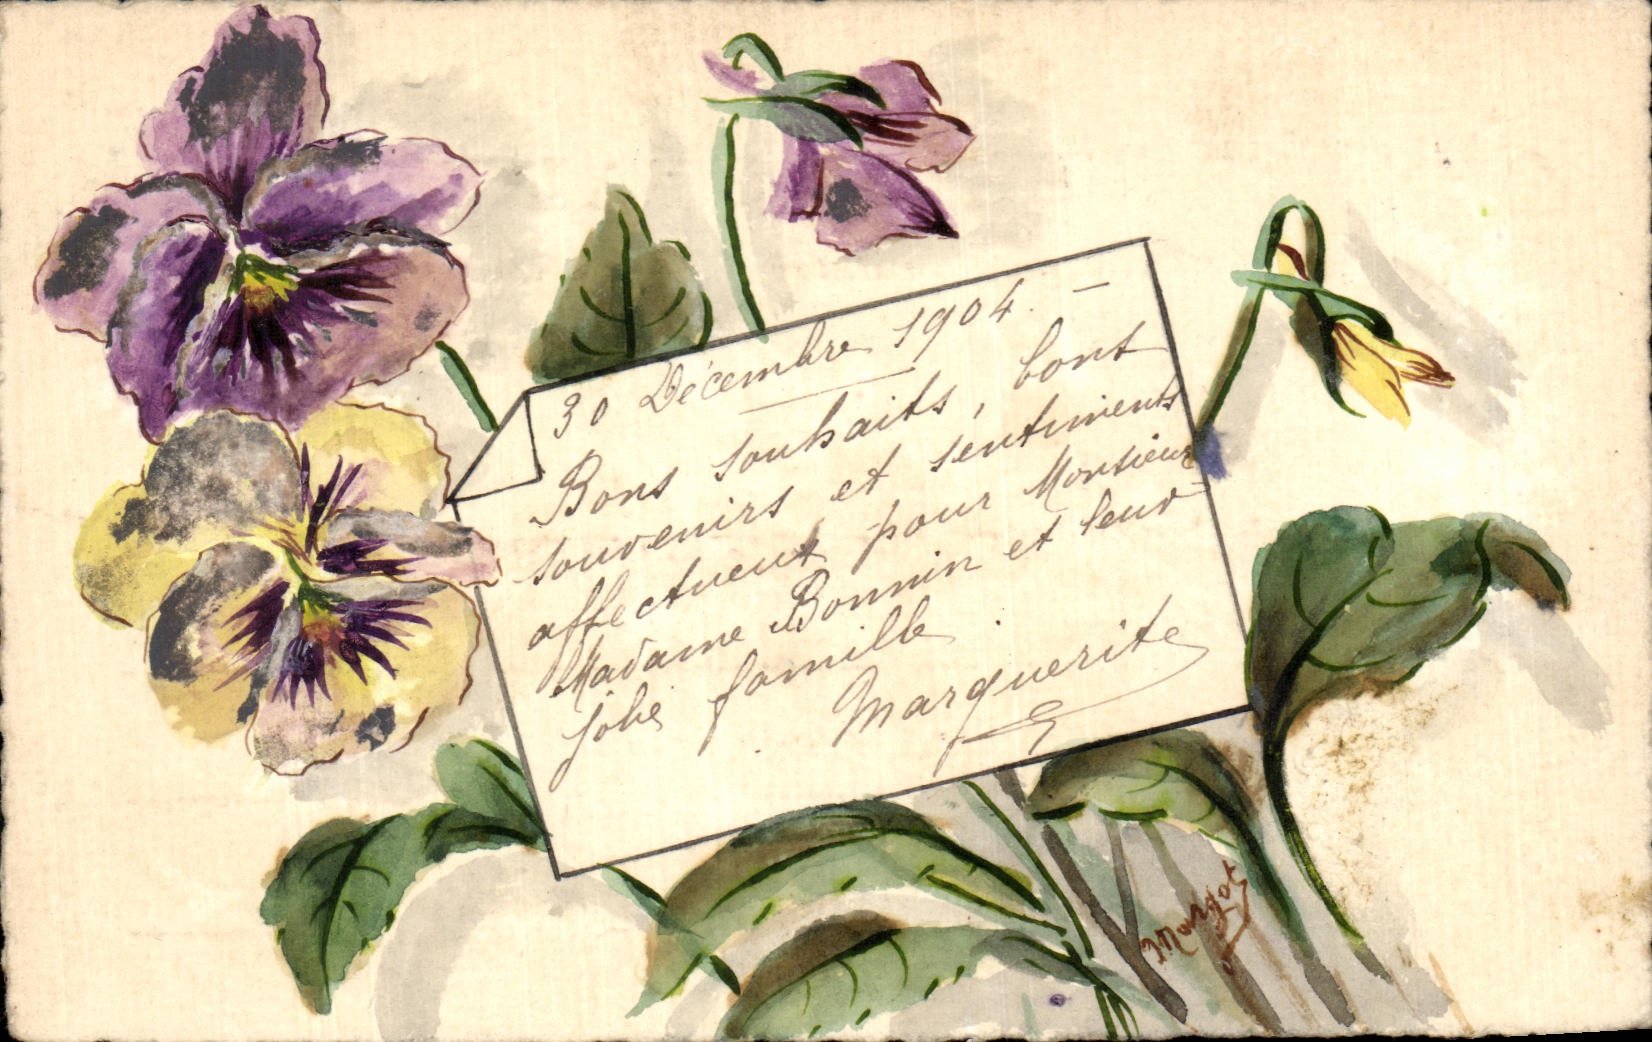 30 Décembre 1904. —
Bons souhaits, bons
souvenirs et sentiments
affectueux pour Monsieur
Madame Bonnin et leur
jolie famille.
Marguerite
Margot